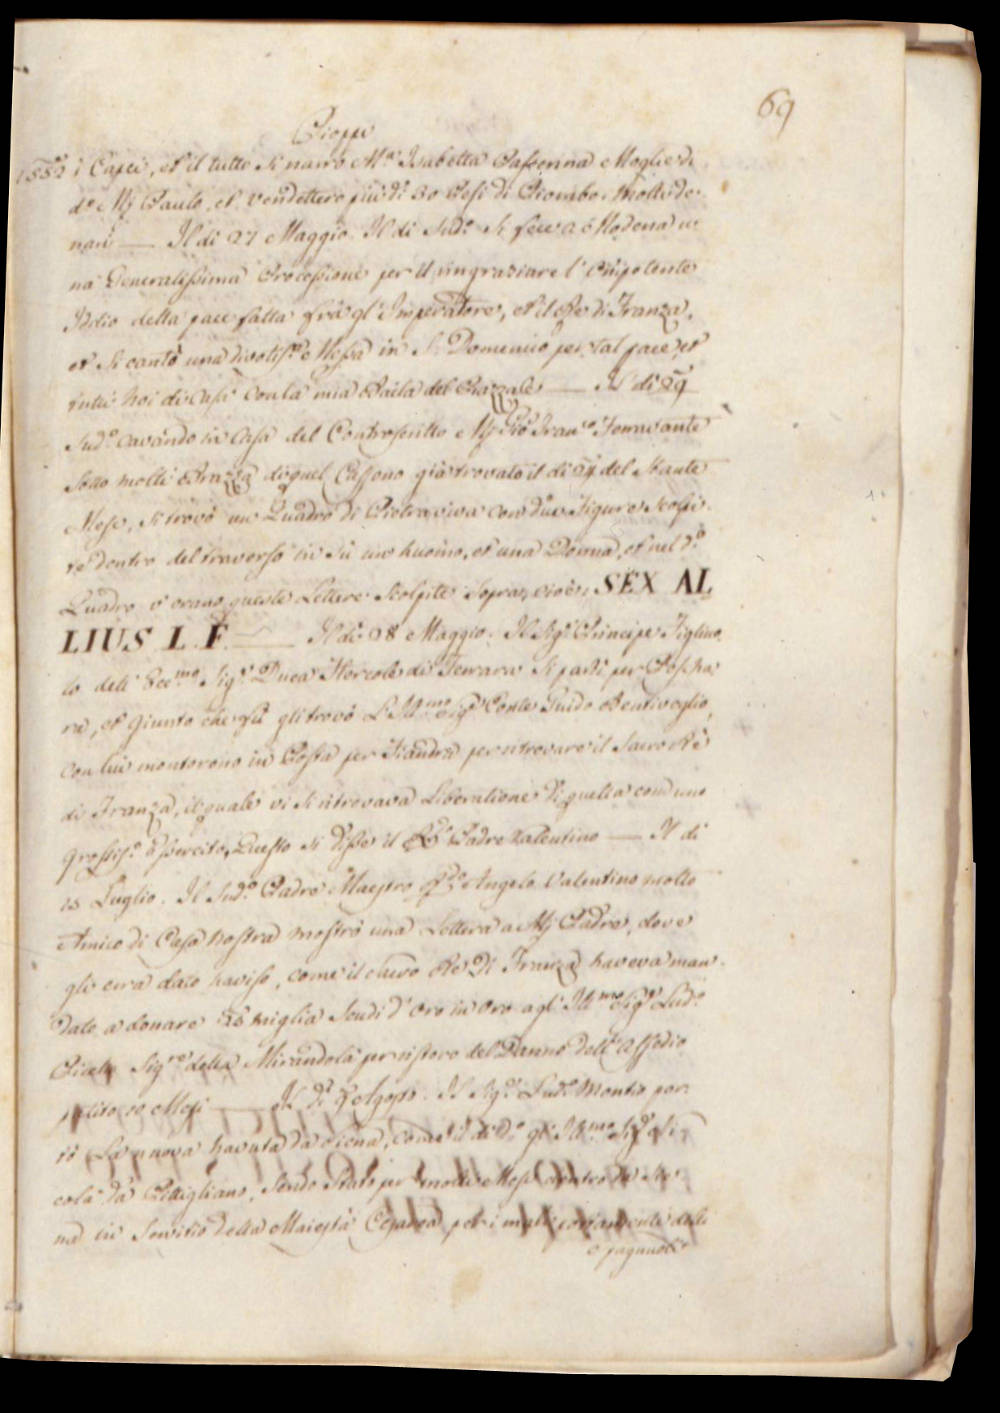 69
Pioppe
1552 i Capei, et il tutto si narrò Mª Isabetta Passerina Moglie di
dº Mj Paulo, et vendettero più di 30 Pesi di Piombo. Molti de-
nari — Il di 27 Maggio. Il di sudº si fece a Modena u-
na Generalissima Processione per il ringratiare l' Onipotente
Iddio della pace fatta frà gl' Imperatore, et il Re di Franza,
et si cantò una divotisª Messa in S. Domenico per tal pace et
tutti noi di Casa con la mia Baila del Piazzale — Il di 29
sudº cavando in Casa del Controscritto Mj Giò Franº Ferravante
sotto molti Brazza di quel Cassono già trovato il di 24 del
Mese, si trovò un Quadro di Pietra viva con due Figure scolpi-
te dentro del traverso in sù un huomo, et una Donna, et nel dº
Quadro v' erano queste Lettere scolpite sopra, cioè: SEX AL
LIUS L. F. — Il di 28 Maggio. Il Sigr Principe Figliuo
lo dell' Eccmo Sigr Duca Hercole di Ferrara si partì per
ra, et giunto che fù gli trovò L' Illmo Sigr Conte Guido Bentivoglio,
con lui montorono in Posta per Fiandra per ritrovare il Sacro Rè
di Franza, il quale vi si ritrovava Liberatione di quella con uno
grossisº Essercito, Questo si disse il Padre Valentino — Il di
15 Luglio. Il sudº Padre Maestro Angelo Valentino molto
Amico di Casa nostra mostrò una Lettera a Mj Padre, dove
gli era dato haviso, come il Re di Franza haveva man-
dato a donare miglia Scudi d' oro in oro agl' Illmo Sigr Ludº
Pico Sigre della Mirandola per ristoro del Danno dell' Assedio
patito 10 Mesi — Il di Agosto. Il Sigr Ludº Montio por-
tò La nuova havuta da Siena, come il di dº gl' Illmo Sigr Ni-
cola da Pittigliano, sendo stato per molti Mesi dentro da Sie-
na in Servitio della Maiestà Cesarea, per i mali portamenti delli
Spagnoli